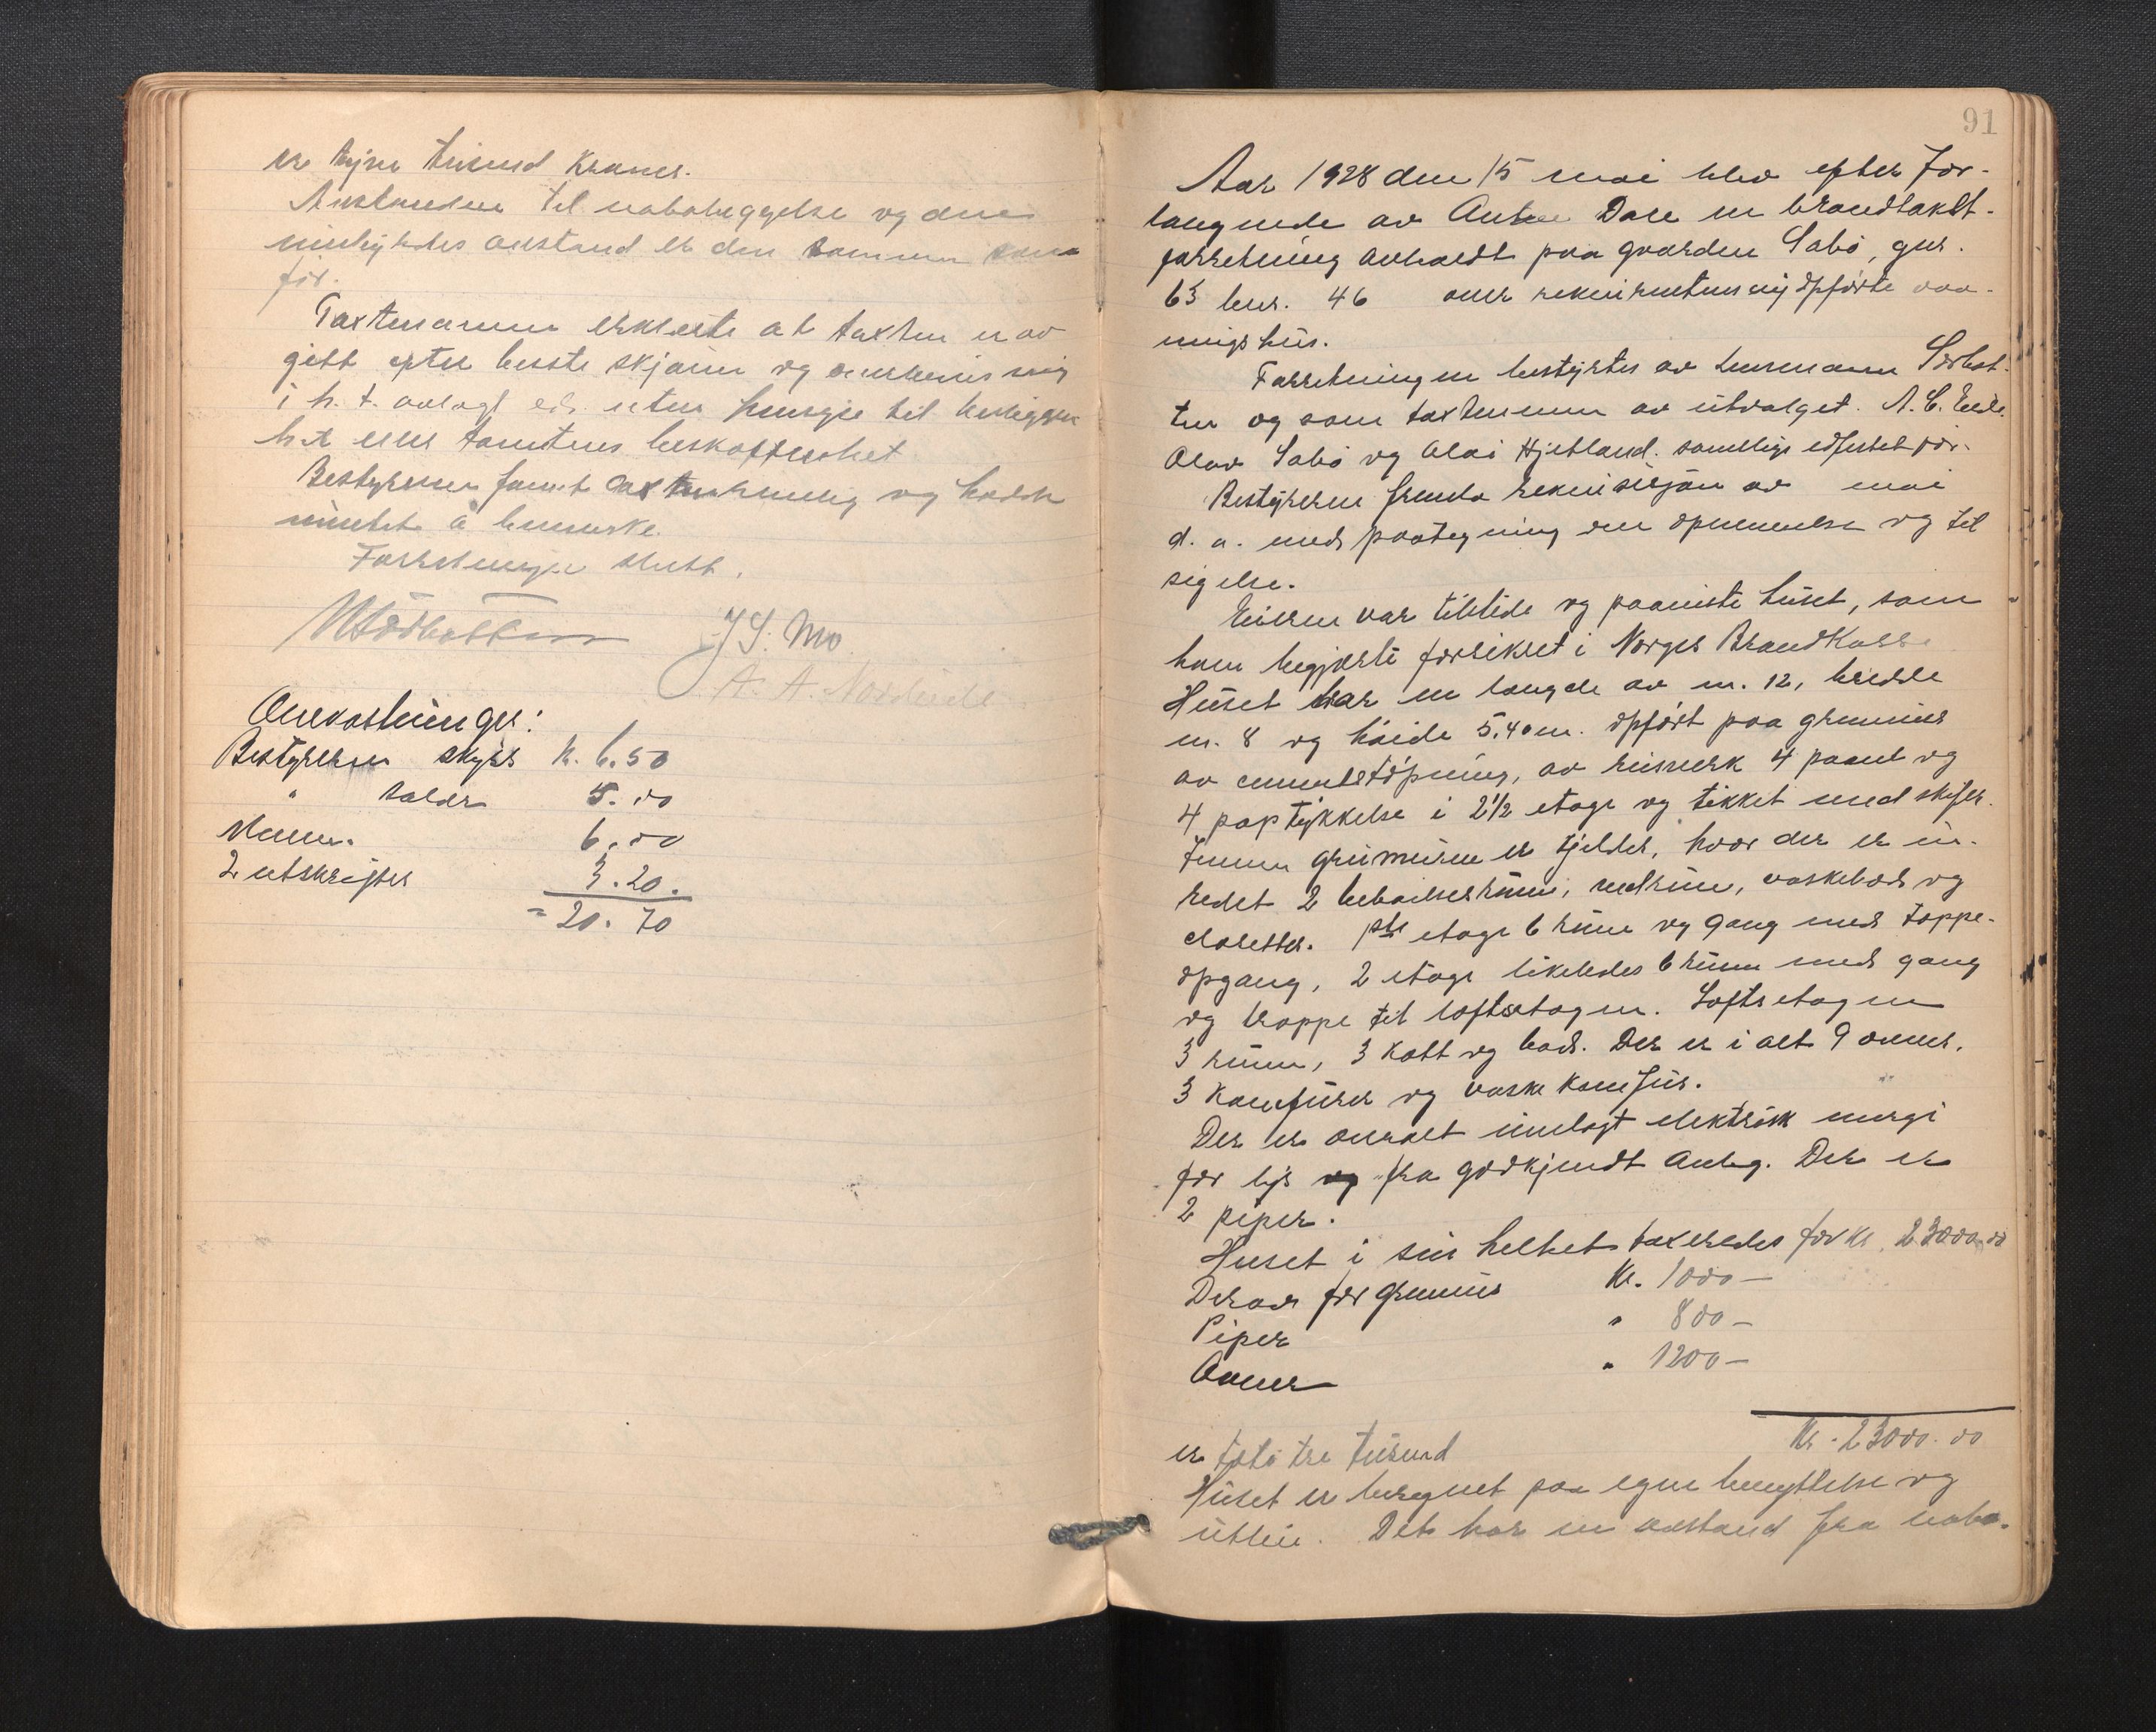 er tyve tusend kroner.
Avstanden til nabobyggelse og dens
avstand er den samme som
før.
Taxtmennene erklærte at taxten er av
gitt efter beste skjønn og overbevisning
i h. t. avlagt ed. uten hensyn til beliggen
het eller tomtens beskaffenhet.
Bestyreren fant taxten rimelig og hadde
intet å bemerke.
Forretningen slutt.
J S. Mo
A. A. Nordeide
Omkostninger:
Bestyreren skyss k. 6.50
" salær 5.00
Menn. 6.00
2 utskrifter 3.20.
= 20.70
91
Aar 1928 den 15 mai blev efter for-
langende av Dale en brandtakst-
forretning avholdt paa gaarden Sabø, gnr.
63 bnr. 46 over rekvirentens nyopførte vaa-
ningshus.
Forretningen bestyrtes av lensmann Sørbot-
ten og som taxtmenn av utvalget. A. C. Eide
Olav Sabø og Olai Hjetland. samtlige edfestet før.
Bestyreren fremla rekvisisjon av mai
d. a. med paategning om opnevnelse og til
sigelse.
Eieren var tilstede og paaviste huset, som
han begjærte forsikret i Norges Brandkasse
Huset har en længde av m. 12, bredde
m. 8 og høide 5.40 m. opført paa grunnmur
av cementstøpning, av reisverk 4 panel og
4 pap tykkelse i 2½ etage og tækket med skifer.
Innen grunmuren er kjelder, hvor der er inn-
redet 2 beboelsesrum, vedrum, vaskebod og
closetter. 1ste etage 6 rum og gang med trappe-
opgang, 2 etage likeledes 6 rum med gang
og trappe til loftsetagen. Loftsetagen
3 rum, 3 kott og bod. Der er i alt 9 ovner.
3 komfurer og vaske komfur.
Der er overalt innlagt elektrisk energi
for lys fra godkjendt anleg. Der er
2 piper.
Huset i sin helhet taxeredes for kr. 23000.00
Derav for grunmur Kr. 1000 –
Piper " 800 –
Ovner " 1200 –
Kr. 23000.00
er toti tre tusend
Huset er beregnet paa egen benyttelse og
utleie. Det har en avstand fra nabo-